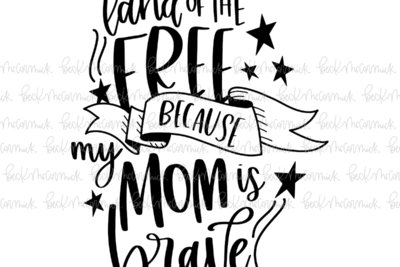 land OF THE
FREE
BECAUSE
my
MOM is
brave